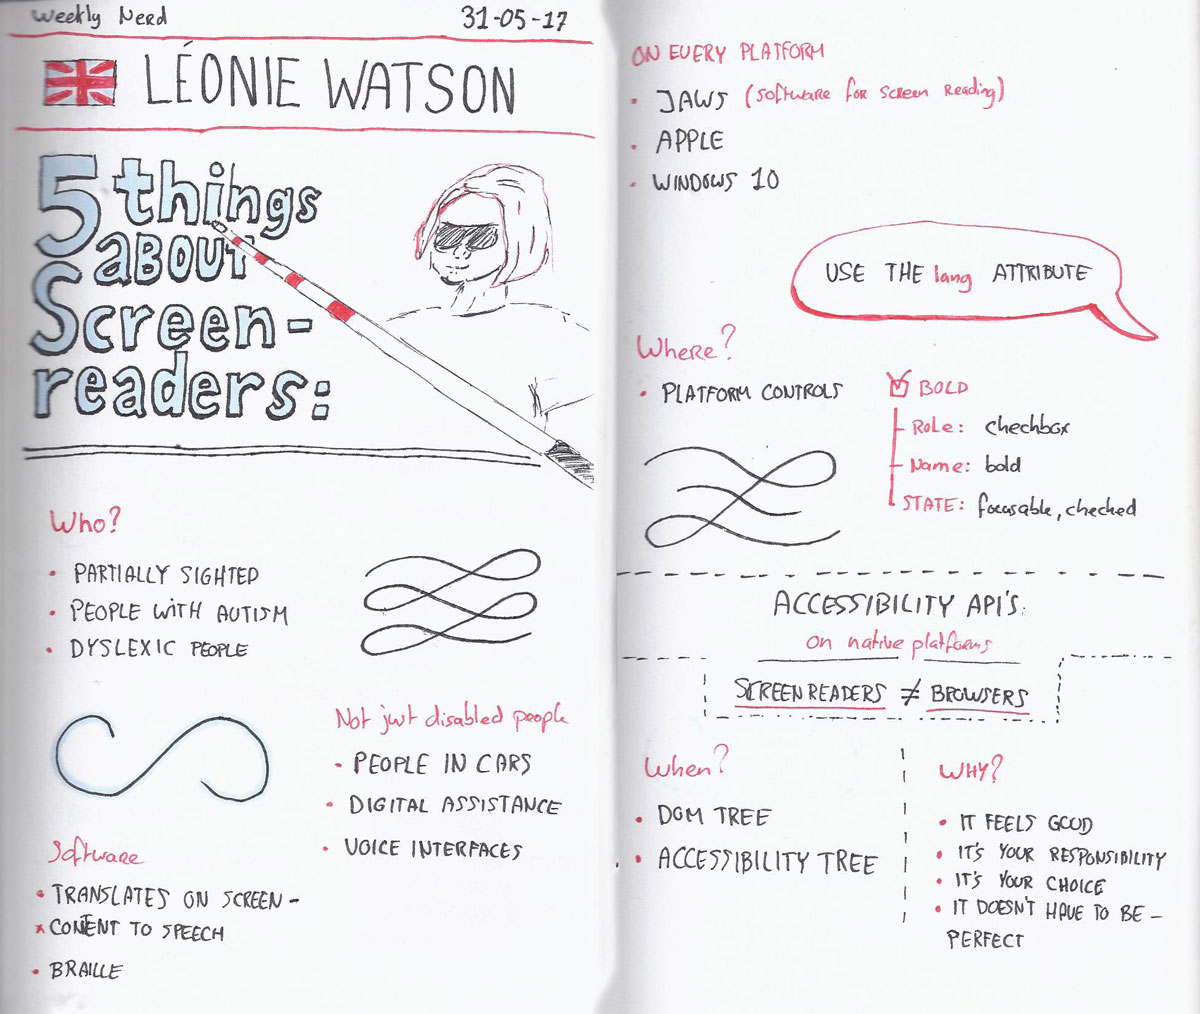 Weekly Nerd
31-05-17
LÉONIE WATSON
5 things
ABOUT
Screen-
readers:
Who?
• PARTIALLY SIGHTED
• PEOPLE WITH AUTISM
• DYSLEXIC PEOPLE
Not just disabled people
• PEOPLE IN CARS
• DIGITAL ASSISTANCE
• VOICE INTERFACES
Software
• TRANSLATES ON SCREEN-
* CONTENT TO SPEECH
• BRAILLE
ON EVERY PLATFORM
• JAWS (Software for Screen Reading)
• APPLE
• WINDOWS 10
USE THE lang ATTRIBUTE
Where?
• PLATFORM CONTROLS
BOLD
Role: chechbox
Name: bold
STATE: focusable, checked
ACCESSIBILITY API'S:
on native platforms
SCREENREADERS ≠ BROWSERS
When?
• DOM TREE
• ACCESSIBILITY TREE
WHY?
• IT FEELS GOOD
• IT'S YOUR RESPONSIBILITY
• IT'S YOUR CHOICE
• IT DOESN'T HAVE TO BE –
PERFECT